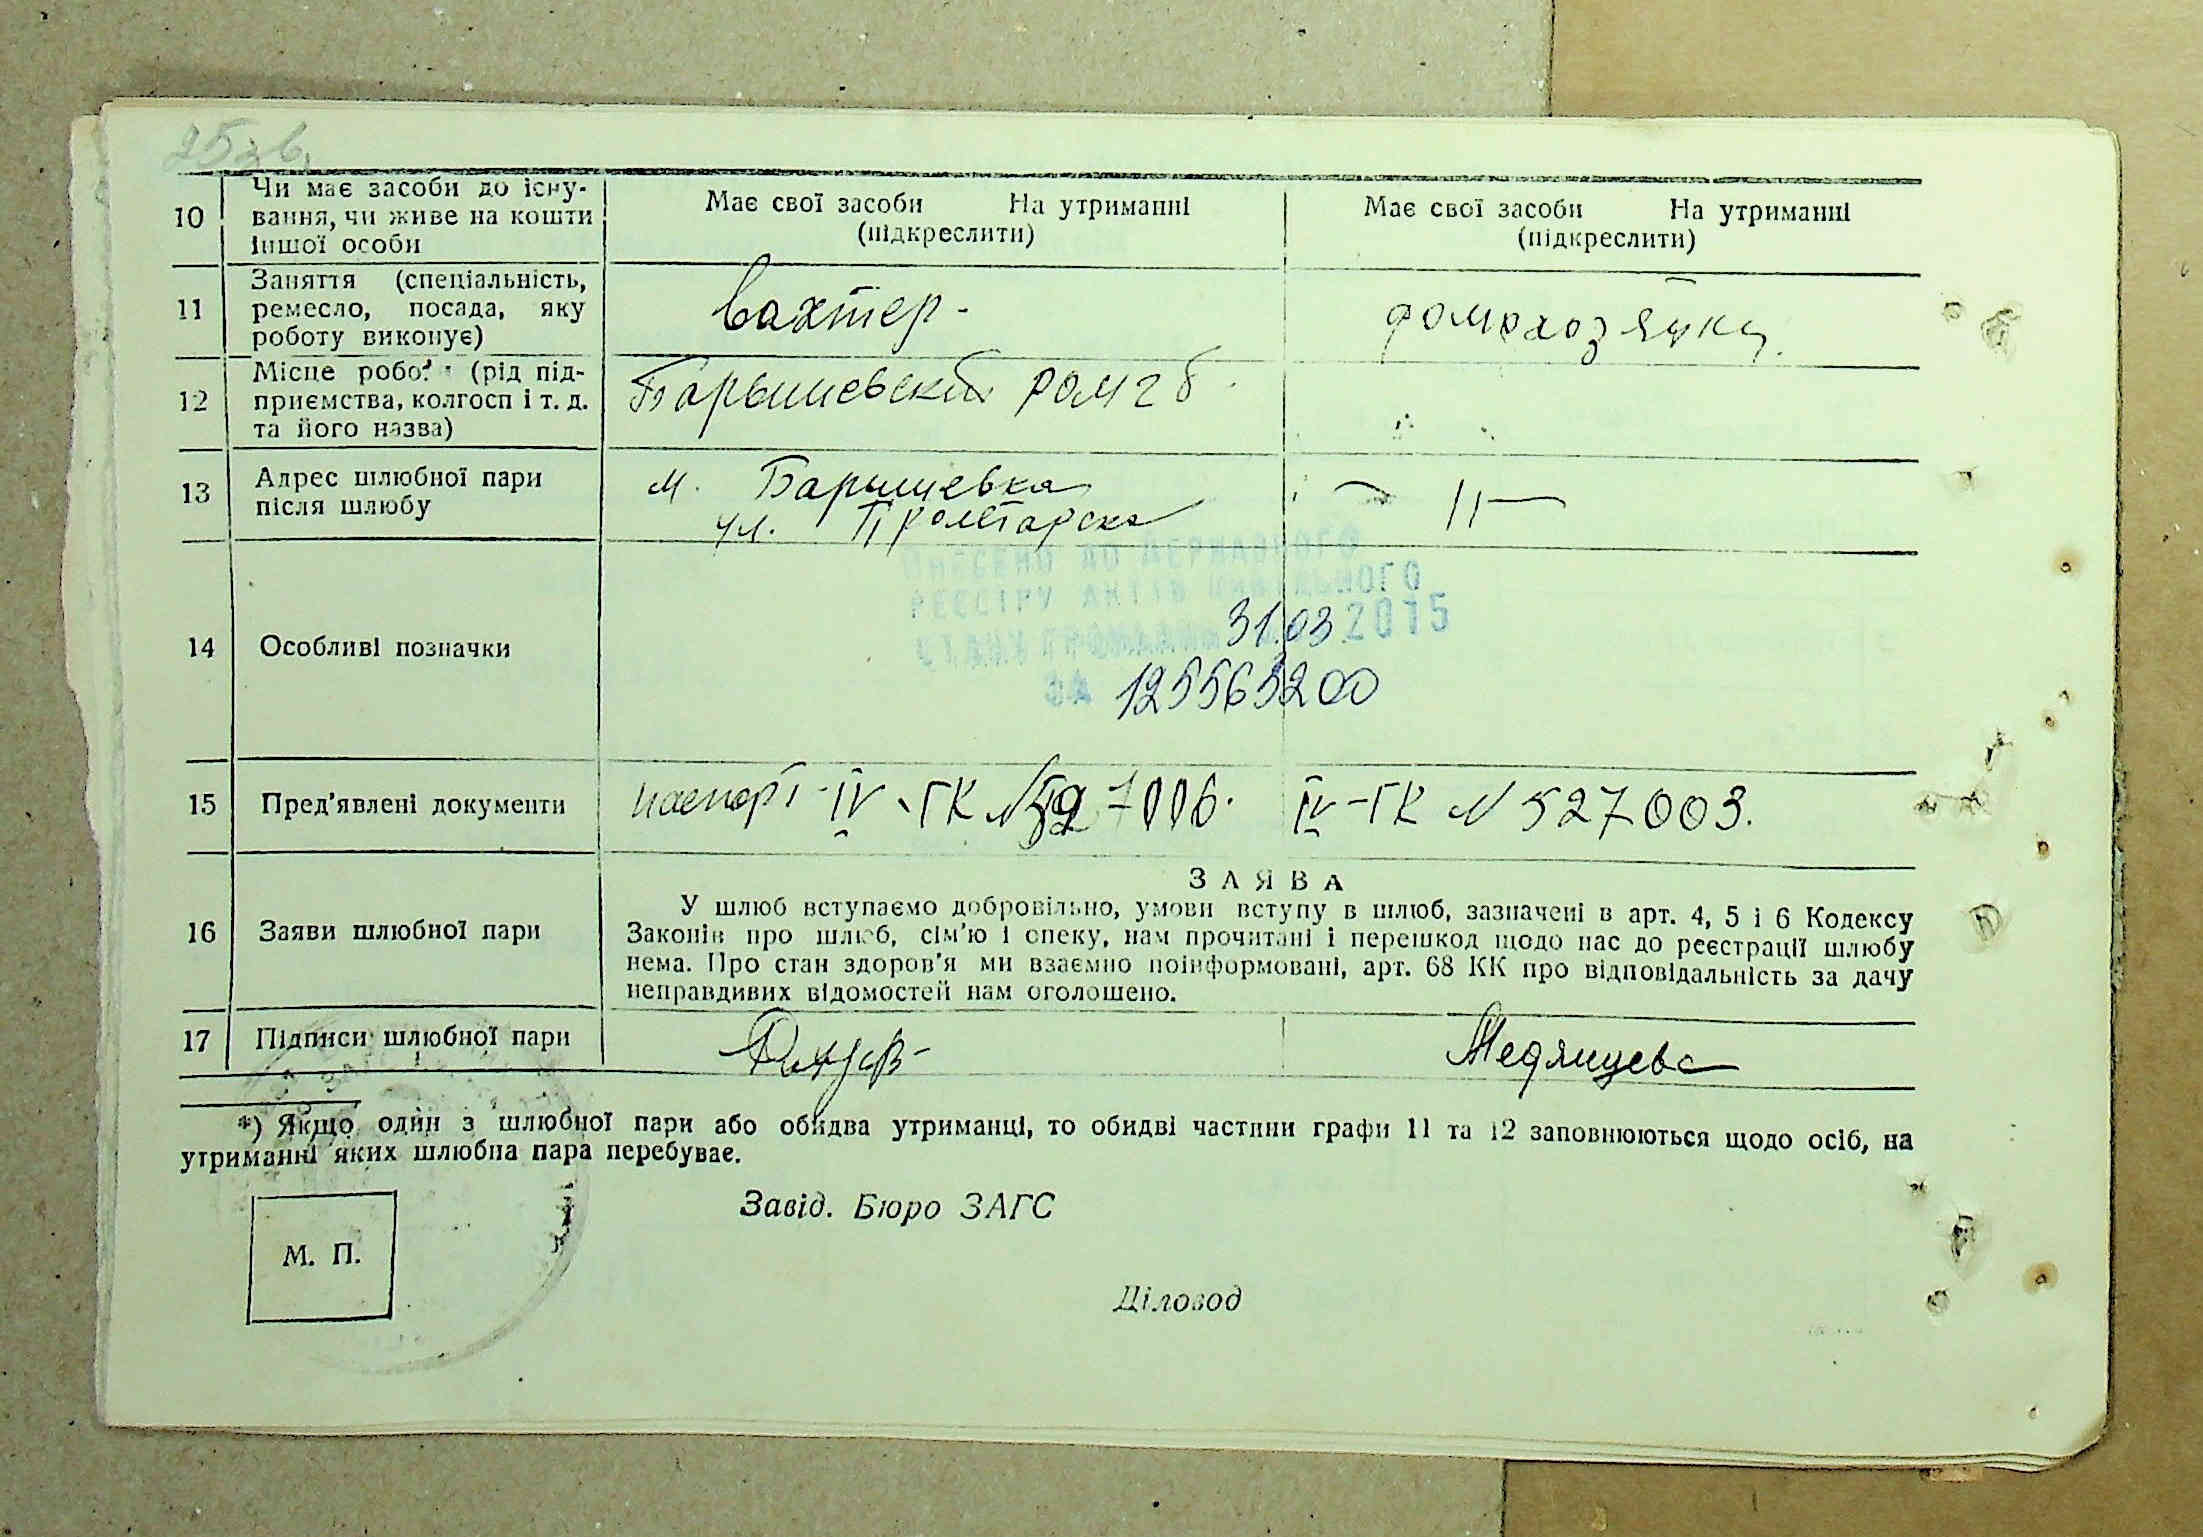 25зв.
10 Чи має засоби до існу-
вання, чи живе на кошти
іншої особи
Має свої засоби На утриманні
(підкреслити)
Має свої засоби На утриманні
(підкреслити)
11 Заняття (спеціальність,
ремесло, посада, яку
роботу виконує)
Вахтер -
домохозяйка.
12 Місце робот (рід під-
приємства, колгосп і т. д.
та його назва)
Барышевский ромгб.
13 Адрес шлюбної пари
після шлюбу
м. Барышевка
ул. Пролетарска
— 11 —
14 Особливі позначки
Внесено до Державного
реєстру актів цивільного
стану громадян
31.03.2015
за 125565200
15 Пред'явлені документи
паспорт IV-ГК № 527006.
IV-ГК N 527003.
16 Заяви шлюбної пари
ЗАЯВА
У шлюб вступаємо добровільно, умови вступу в шлюб, зазначені в арт. 4, 5 і 6 Кодексу
Законів про шлюб, сім'ю і опеку, нам прочитані і перешкод щодо нас до реєстрації шлюбу
нема. Про стан здоров'я ми взаємно поінформовані, арт. 68 КК про відповідальність за дачу
неправдивих відомостей нам оголошено.
17 Підписи шлюбної пари
Медянцева
*) Якщо один з шлюбної пари або обидва утриманці, то обидві частини графи 11 та 12 заповнюються щодо осіб, на
утриманні яких шлюбна пара перебуває.
Завід. Бюро ЗАГС
М. П.
Діловод